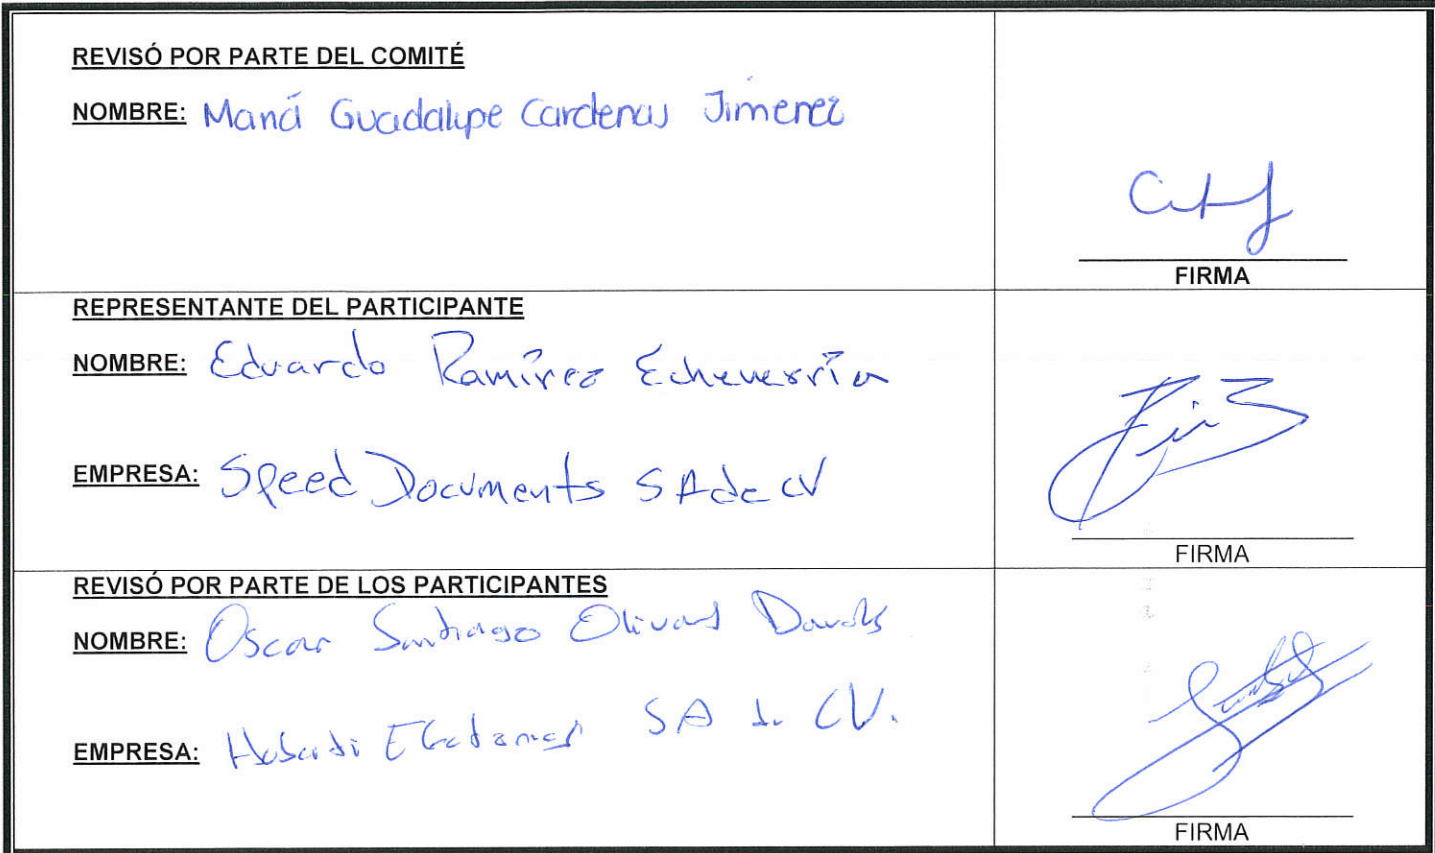 REVISÓ POR PARTE DEL COMITÉ
NOMBRE: María Guadalupe Cardenas Jimenez
FIRMA
REPRESENTANTE DEL PARTICIPANTE
NOMBRE: Eduardo Ramírez Echeverría
EMPRESA: Speed Documents SA de CV
FIRMA
REVISÓ POR PARTE DE LOS PARTICIPANTES
NOMBRE: Oscar Santiago Olivares
EMPRESA: SA de CV.
FIRMA